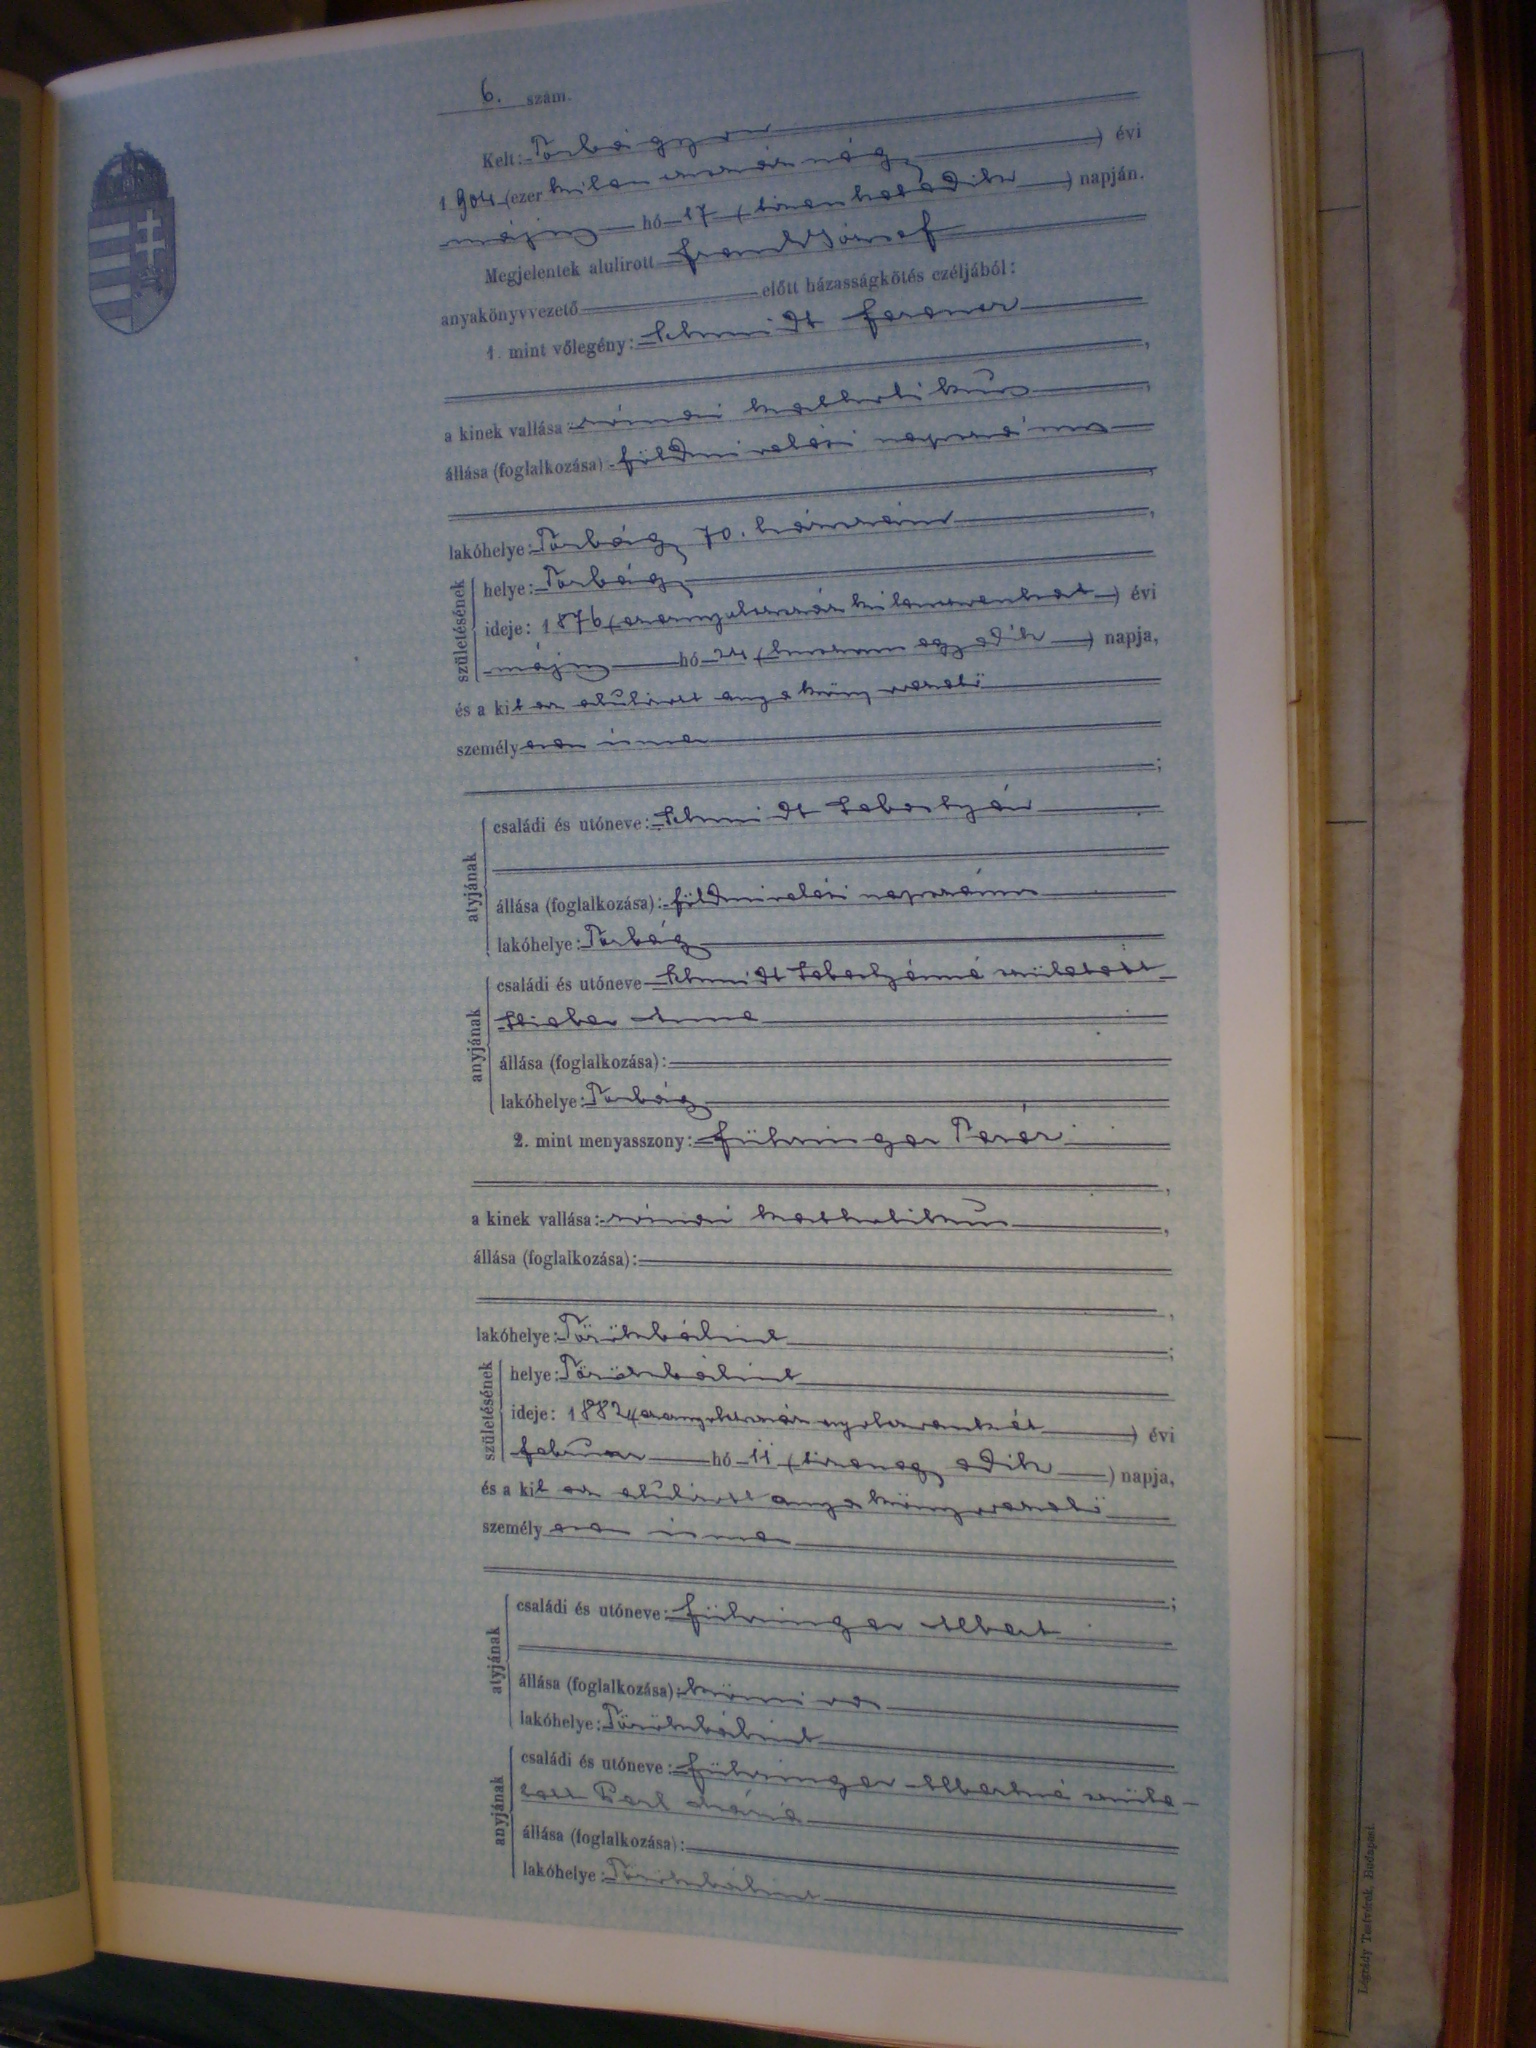 6. szám.
Kelt: Torbágyon
1904 (ezer kilencszáznégy) évi
május hó 17 (tizenhetedik) napján.
Megjelentek alulirott Frank József
anyakönyvvezető előtt házasságkötés czéljából:
1. mint vőlegény: Schmidt Ferencz
a kinek vallása: római katholikus
állása (foglalkozása): földmivelési napszámos
lakóhelye: Torbágy 70. házszám
születésének
helye: Torbágy
ideje: 1876 (ezernyolczszázhetvenhat) évi
május hó 24 (huszon) napja,
és a kit az alulirott anyakönyvvezető
személyesen ismer
;
atyjának
családi és utóneve: Schmidt Sebestyén
állása (foglalkozása): földmivelési napszámos
lakóhelye: Torbágy
anyjának
családi és utóneve Schmidt Sebestyénné született
Stieber Anna
állása (foglalkozása):
lakóhelye: Torbágy
2. mint menyasszony: Führinger Teréz
a kinek vallása: római katholikus
állása (foglalkozása):
lakóhelye: Törökbálint
születésének
helye: Törökbálint
ideje: 1882 (ezernyolczszáznyolczvankét) évi
február hó 11 (tizenegyedik) napja,
és a kit az alulirott anyakönyvvezető
személyesen ismer
;
atyjának
családi és utóneve: Führinger Albert
állása (foglalkozása):
lakóhelye: Törökbálint
anyjának
családi és utóneve: Führinger Albertné szüle-
tett Perl Mária
állása (foglalkozása):
lakóhelye: Törökbálint
Légrády Testvérek, Budapest